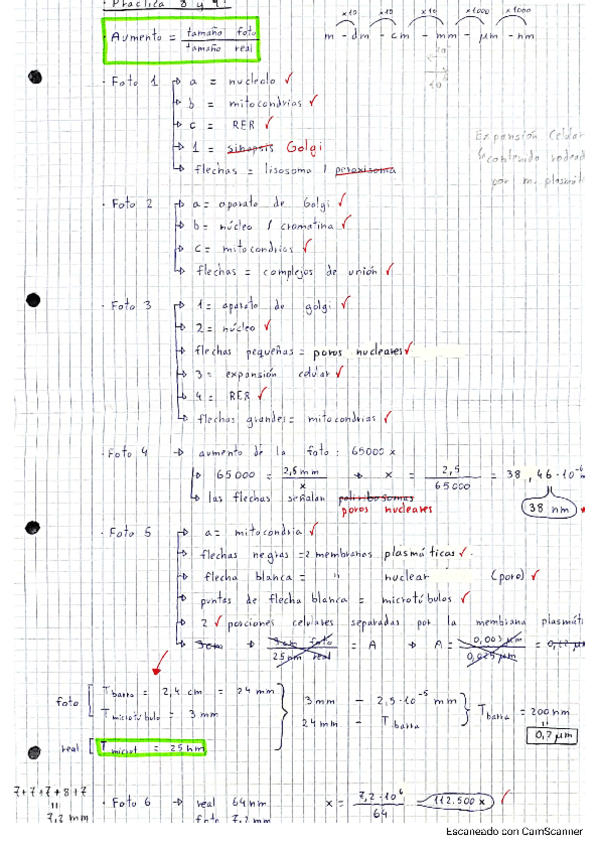 · Práctica 8 y 9:
· Aumento = tamaño foto / tamaño real
x10 x10 x10 x1000 x1000
m - dm - cm - mm - µm - nm
· Foto 1 → a = nucleolo ✓
→ b = mitocondrias ✓
→ c = RER ✓
→ 1 = sinapsis Golgi
→ flechas = lisosoma / peroxisoma
Expansión Celular
↳ contenido rodead
por m. plasmáti
· Foto 2 → a = aparato de Golgi ✓
→ b = núcleo / cromatina ✓
→ c = mitocondrias ✓
→ flechas = complejos de unión ✓
· Foto 3 → 1 = aparato de golgi ✓
→ 2 = núcleo ✓
→ flechas pequeñas = poros nucleares ✓
→ 3 = expansión celular ✓
→ 4 = RER ✓
→ flechas grandes = mitocondrias ✓
· Foto 4 → aumento de la foto: 65000 x
→ 65000 = 2,5 mm / x → x = 2,5 / 65000 = 38,46·10⁻⁶
↳ las flechas señalan poliribosomas
poros nucleares
38 nm
· Foto 5 → a = mitocondria ✓
→ flechas negras = 2 membranas plasmáticas ✓
→ flecha blanca = " nuclear (poro) ✓
→ puntas de flecha blanca = microtúbulos ✓
→ 2 ✓ porciones celulares separadas por la membrana plasmáti
→ 3 cm → 3 cm foto / 25 nm real = A → A = 0,003 µm / 0,025 µm =
foto [ T barra = 2,4 cm = 24 mm
T microtúbulo = 3 mm
3 mm - 2,5·10⁻⁵ mm
24 mm - T barra
T barra = 200 nm
=
0,2 µm
real [ T microt = 25 nm
7+7+7+8+7
=
7,2 mm
· Foto 6 → real 64 nm
foto 7,2 mm
x = 7,2·10⁶ / 64 = 112.500 x ✓
Escaneado con CamScanner